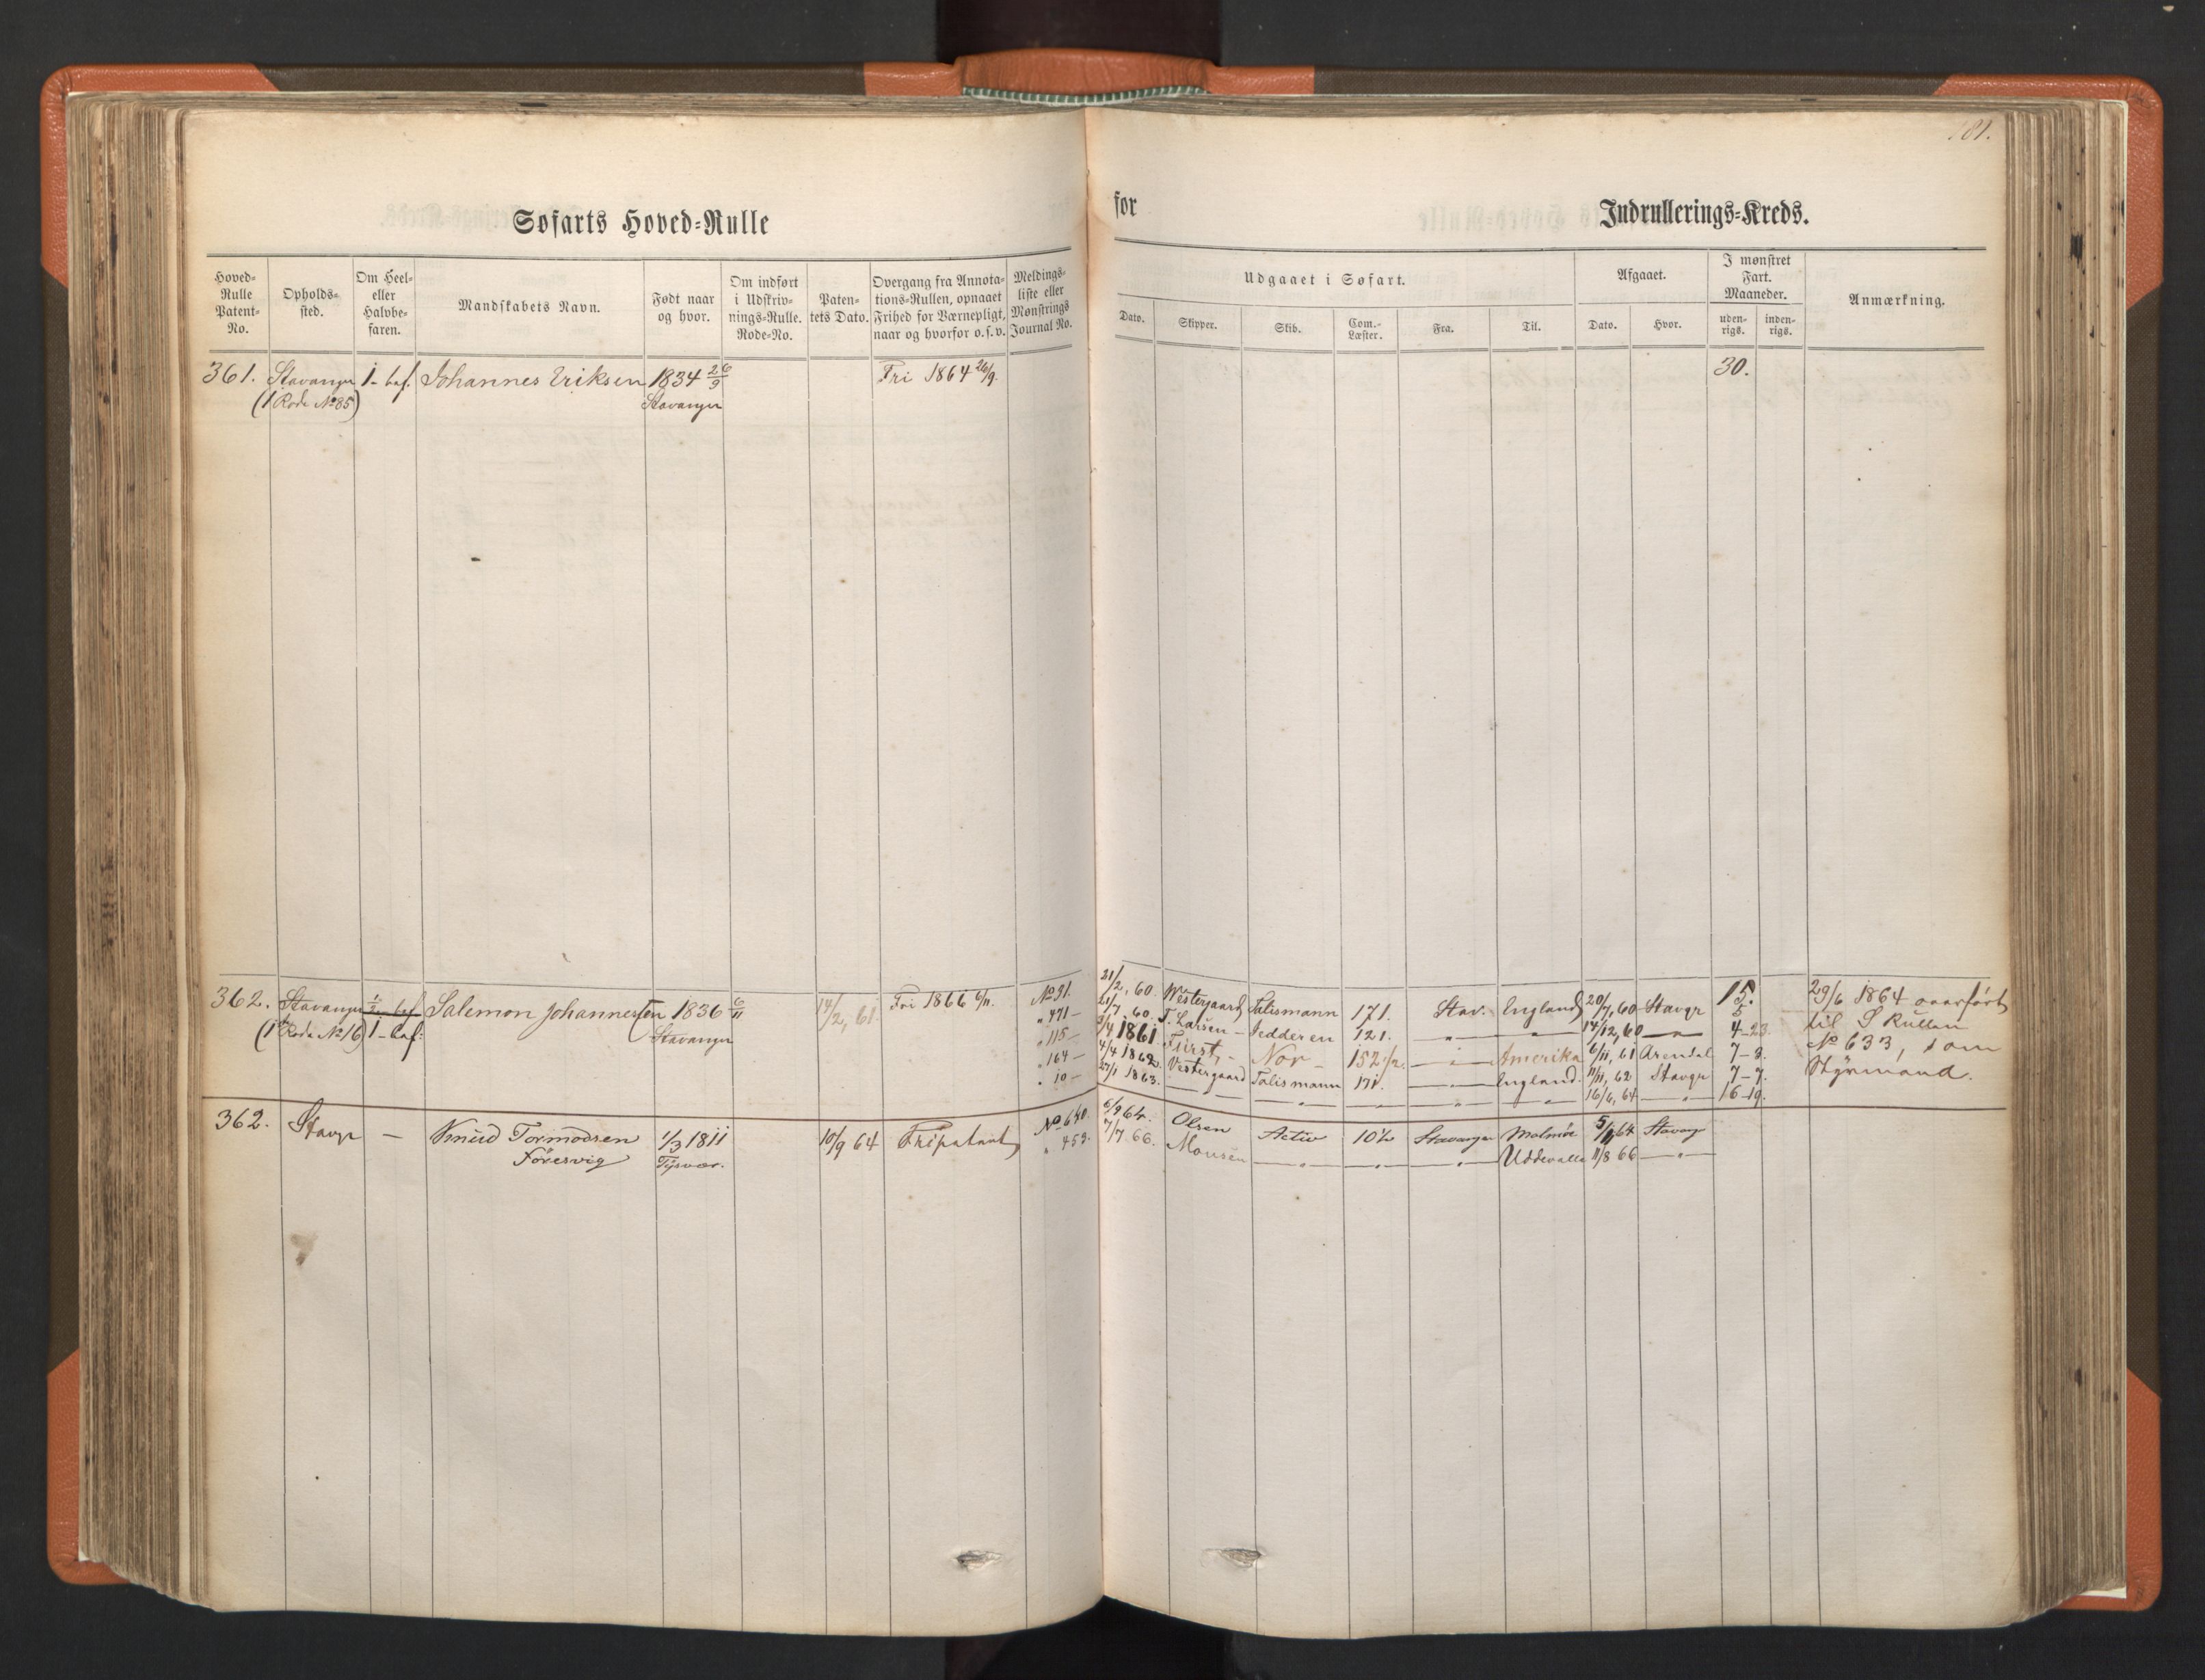 181.
Søfarts Hoved-Rulle for Indrullerings-Kreds.
Hoved-Rulle Patent-No. Opholds-sted. Om Heel- eller Halvbe-faren. Mandskabets Navn. Født naar og hvor. Om indført i Udskriv-nings-Rulle. Rode-No. Paten-tets Dato. Overgang fra Annota-tions-Rullen, opnaaet Frihed for Værnepligt, naar og hvorfor o.s.v. Meldings-liste eller Mønstrings Journal No.
Udgaaet i Søfart. Afgaaet. I mønstret Fart. Maaneder. Anmærkning.
Dato. Skipper. Skib. Com.-Læster. Fra. Til. Dato. Hvor. uden-rigs. inden-rigs.
361. Stavanger 1-bef. Johannes Eriksen 1834 26/9 Fri 1864 26/9. 30.
(1 Rode No 85) Stavanger
362. Stavanger 1/2 bef. Salemon Johannessen 1836 6/11 14/2, 61. Fri 1866 6/11. No 91. 21/2, 60. Westergaard Talismann 171. Stav. England 20/7, 60 Stavgr 15. 29/6 1864 overført
(1 Rode No 16) 1-bef: Stavanger " 471 - 21/7, 60. T. Larsen - Jedderen 121. — " — " 14/12, 60 — " — 4-23. til S Rullen
" 115 - 1861 Fürst, - Nor - 152 1/2. — " — Amerika 6/11, 61 Arendal 7-8. No 633, som
" 164 - 4/4 1862. Vestergaard Talismann 171. — " — England. 11/11, 62 Stavgr 7-7. Styrmand.
" 10 - 1863. — " — — " — — " — — " — — " — 16/6, 64 — " — 16-19.
362. Stavgr — Knud Tormodsen 1/3 1811 10/9 64 Fripatent No 640. 6/9 64. Olsen Activ 10 1/2 Stavanger Malmöe 64 Stavgr
Føresvig Tysvær. " 453. 7/7 66. Monsen — " — — " — — " — Uddevalla 11/8 66 — " —